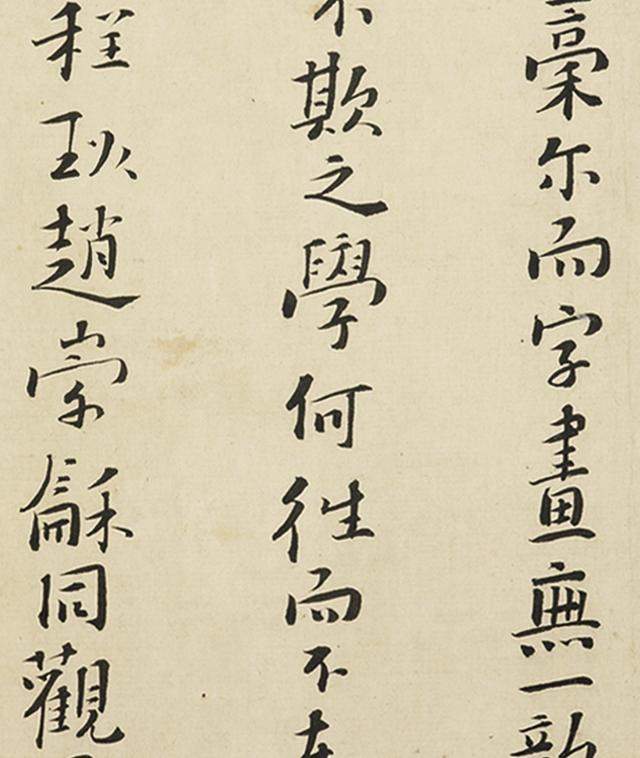 稾尔而字畫無一
不欺之學何徃而不在
程珌趙崇龢同觀